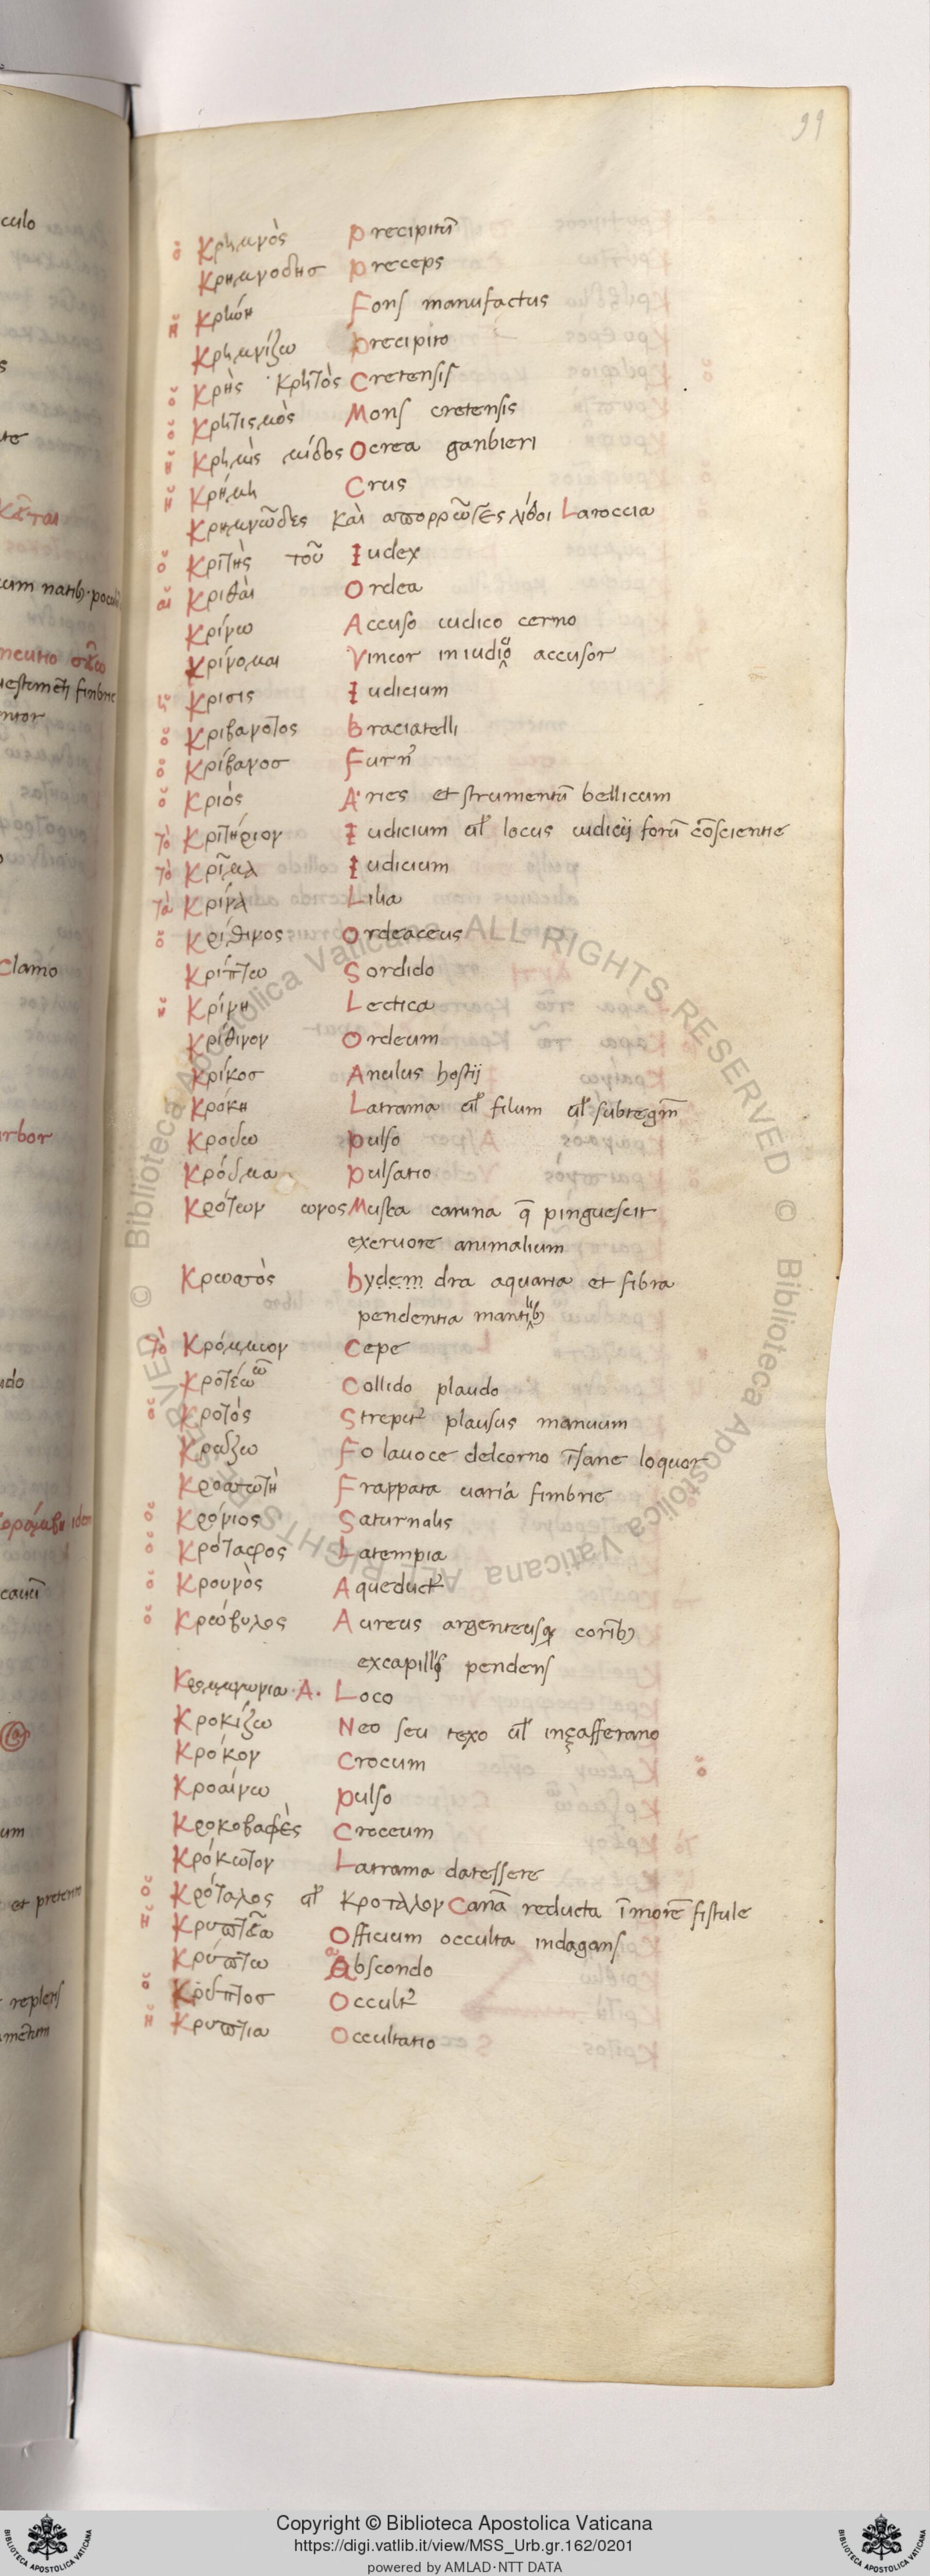 99
ὁ Κρημνὸς Precipitiū
Κρημνοδης Preceps
ἡ Κρήνη Fons manufactus
Κρημνίζω Precipito
ὁ Κρὴς Κρητὸς Cretensis
ὁ Κρητισμὸς Mons cretensis
ἡ Κρηπὶς πίδος Ocrea ganbieri
ἡ Crus
Κρημνῶδες καὶ αποῤῥῶγες λίθοι Laroccia
ὁ Κριτὴς τοῦ Iudex
αἱ Κριθὰι Ordea
Κρίνω Accuso iudico cerno
Κρίνομαι Vincor in iudicio accusor
ἡ Κρισις Iudicium
ὁ Κριβανοτος Braciatelli
ὁ Κρίβανος Furnꝰ
ὁ Κριὸς Aries et strumentū bellicum
τὸ Κριτήριον Iudicium ul̄ locus iudicij forū cōscientie
τὸ Κρῖμα Iudicium
τὰ Κρίνα Lilia
ὁ Κρίθινος Ordeaceus
Κρίπτω Sordido
ἡ Κρίνη Lectica
Κρίθινον Ordeum
Κρίκος Anulus hostij
Κρόκη Latrama ul̄ filum ul̄ subtegm̄
Κρουω Pulso
Κρόυμα Pulsatio
Κρότων ωνος Musca canina q̄ pinguescit
excruore animalium
Κρωσσὸς hydem dra aquaria et fibra
pendentia mantib
τὸ Κρόμμιον Cepe
Κροτέω ῶ Collido plaudo
ὁ Κροτὸς Strepitꝰ plausus manuum
Κρώζω Fo lavoce delcorno īsane loquor
Κροσσωτὴ Frappata uaria fimbrie
ὁ Κρόνιος Saturnalis
ὁ Κρόταφος Latempia
ὁ Κρουνὸς Aqueductꝰ
ὁ Κρώβυλος Aureus argenteusqꝫ
excapillis pendens
A. Loco
Κροκίζω Neo seu texo ul̄ inçafferano
Κρόκον Crocum
Κροαίνω Pulso
Κροκοβαφὲς Croceum
Κρόκωτον Latrama datessere
ὁ Κρόταλος ul̄ κροτάλον Cannā reducta ī morē fistule
ἡ Officium occulta indagans
Κρύπτω Abscondo
ὁ Κρυπτος Occultꝰ
ἡ Κρυπτια Occultatio
Copyright © Biblioteca Apostolica Vaticana
https://digi.vatlib.it/view/MSS_Urb.gr.162/0201
powered by AMLAD·NTT DATA